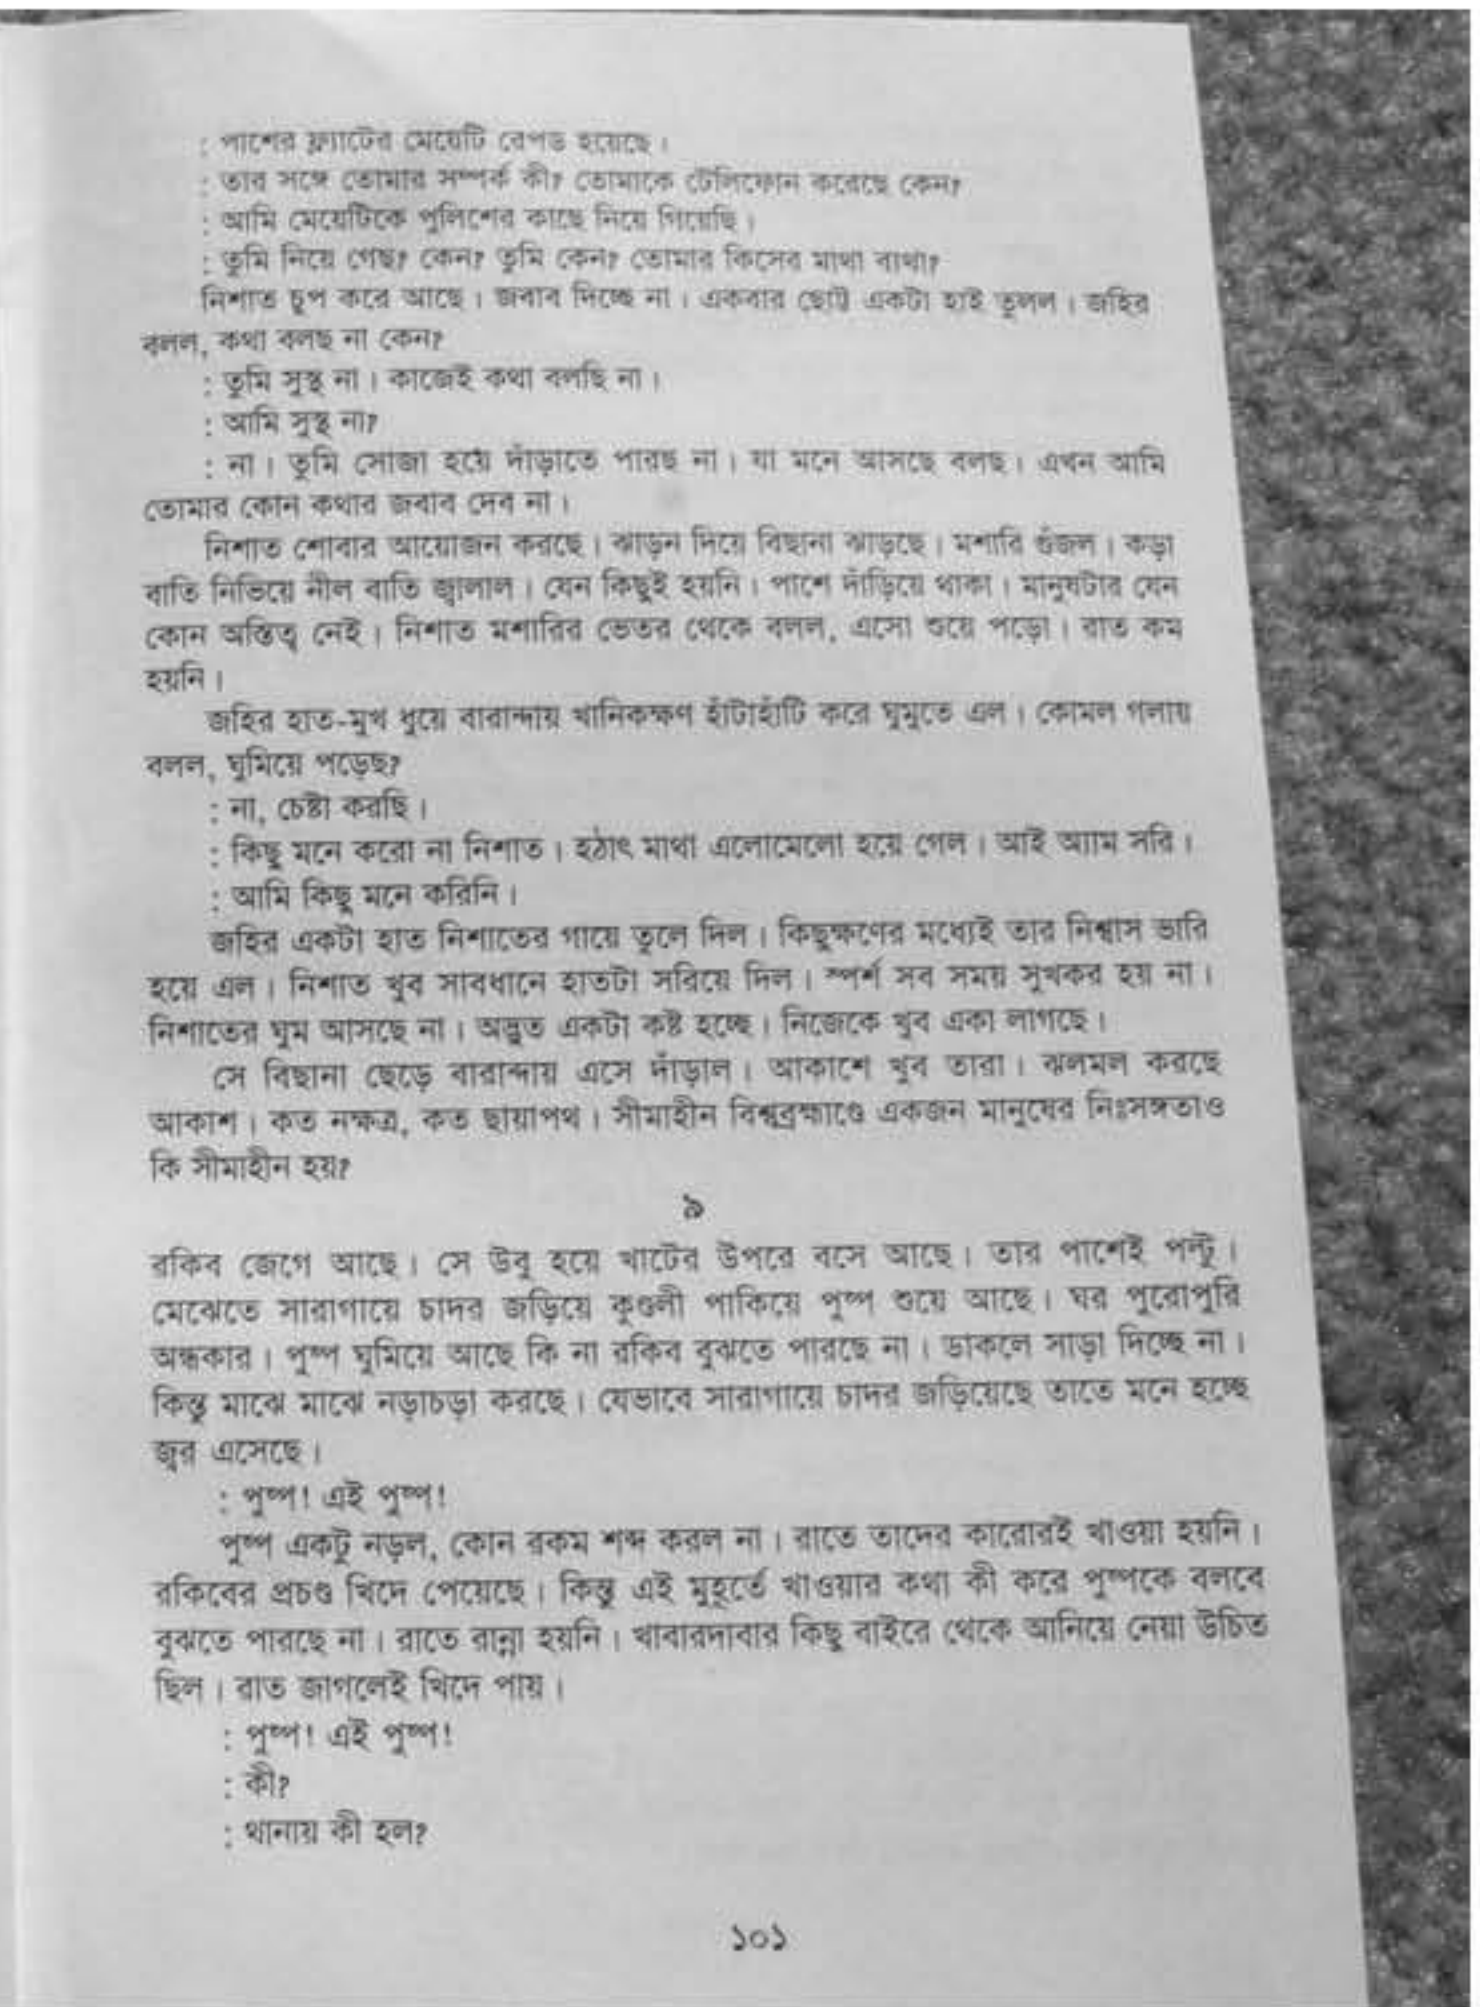 : পাশের ফ্ল্যাটের মেয়েটি রেপড হয়েছে।
: তার সঙ্গে তোমার সম্পর্ক কী? তোমাকে টেলিফোন করেছে কেন?
: আমি মেয়েটিকে পুলিশের কাছে নিয়ে গিয়েছি।
: তুমি নিয়ে গেছ? কেন? তুমি কেন? তোমার কিসের মাথা ব্যথা?
নিশাত চুপ করে আছে। জবাব দিচ্ছে না। একবার ছোট্ট একটা হাই তুলল। জহির
বলল, কথা বলছ না কেন?
: তুমি সুস্থ না। কাজেই কথা বলছি না।
: আমি সুস্থ না?
: না। তুমি সোজা হয়ে দাঁড়াতে পারছ না। যা মনে আসছে বলছ। এখন আমি
তোমার কোন কথার জবাব দেব না।
নিশাত শোবার আয়োজন করছে। ঝাড়ন দিয়ে বিছানা ঝাড়ছে। মশারি গুঁজল। কড়া
বাতি নিভিয়ে নীল বাতি জ্বালাল। যেন কিছুই হয়নি। পাশে দাঁড়িয়ে থাকা। মানুষটার যেন
কোন অস্তিত্ব নেই। নিশাত মশারির ভেতর থেকে বলল, এসো শুয়ে পড়ো। রাত কম
হয়নি।
জহির হাত-মুখ ধুয়ে বারান্দায় খানিকক্ষণ হাঁটাহাঁটি করে ঘুমুতে এল। কোমল গলায়
বলল, ঘুমিয়ে পড়েছ?
: না, চেষ্টা করছি।
: কিছু মনে করো না নিশাত। হঠাৎ মাথা এলোমেলো হয়ে গেল। আই অ্যাম সরি।
: আমি কিছু মনে করিনি।
জহির একটা হাত নিশাতের গায়ে তুলে দিল। কিছুক্ষণের মধ্যেই তার নিশ্বাস ভারি
হয়ে এল। নিশাত খুব সাবধানে হাতটা সরিয়ে দিল। স্পর্শ সব সময় সুখকর হয় না।
নিশাতের ঘুম আসছে না। অদ্ভুত একটা কষ্ট হচ্ছে। নিজেকে খুব একা লাগছে।
সে বিছানা ছেড়ে বারান্দায় এসে দাঁড়াল। আকাশে খুব তারা। ঝলমল করছে
আকাশ। কত নক্ষত্র, কত ছায়াপথ। সীমাহীন বিশ্বব্রহ্মাণ্ডে একজন মানুষের নিঃসঙ্গতাও
কি সীমাহীন হয়?
৯
রকিব জেগে আছে। সে উবু হয়ে খাটের উপরে বসে আছে। তার পাশেই পল্টু।
মেঝেতে সারাগায়ে চাদর জড়িয়ে কুণ্ডলী পাকিয়ে পুষ্প শুয়ে আছে। ঘর পুরোপুরি
অন্ধকার। পুষ্প ঘুমিয়ে আছে কি না রকিব বুঝতে পারছে না। ডাকলে সাড়া দিচ্ছে না।
কিন্তু মাঝে মাঝে নড়াচড়া করছে। যেভাবে সারাগায়ে চাদর জড়িয়েছে তাতে মনে হচ্ছে
জ্বর এসেছে।
: পুষ্প! এই পুষ্প!
পুষ্প একটু নড়ল, কোন রকম শব্দ করল না। রাতে তাদের কারোরই খাওয়া হয়নি।
রকিবের প্রচণ্ড খিদে পেয়েছে। কিন্তু এই মুহূর্তে খাওয়ার কথা কী করে পুষ্পকে বলবে
বুঝতে পারছে না। রাতে রান্না হয়নি। খাবারদাবার কিছু বাইরে থেকে আনিয়ে নেয়া উচিত
ছিল। রাত জাগলেই খিদে পায়।
: পুষ্প! এই পুষ্প!
: কী?
: থানায় কী হল?
১০১